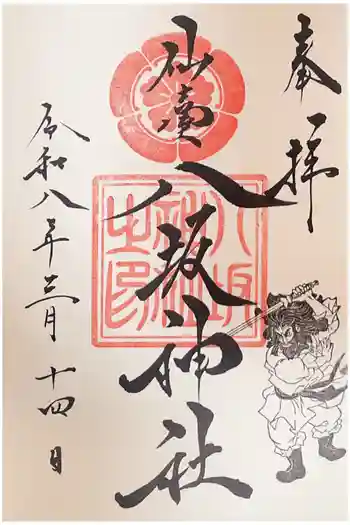 奉拝
仙臺
八坂神社
八坂
神社
之印
令和八年三月十四日